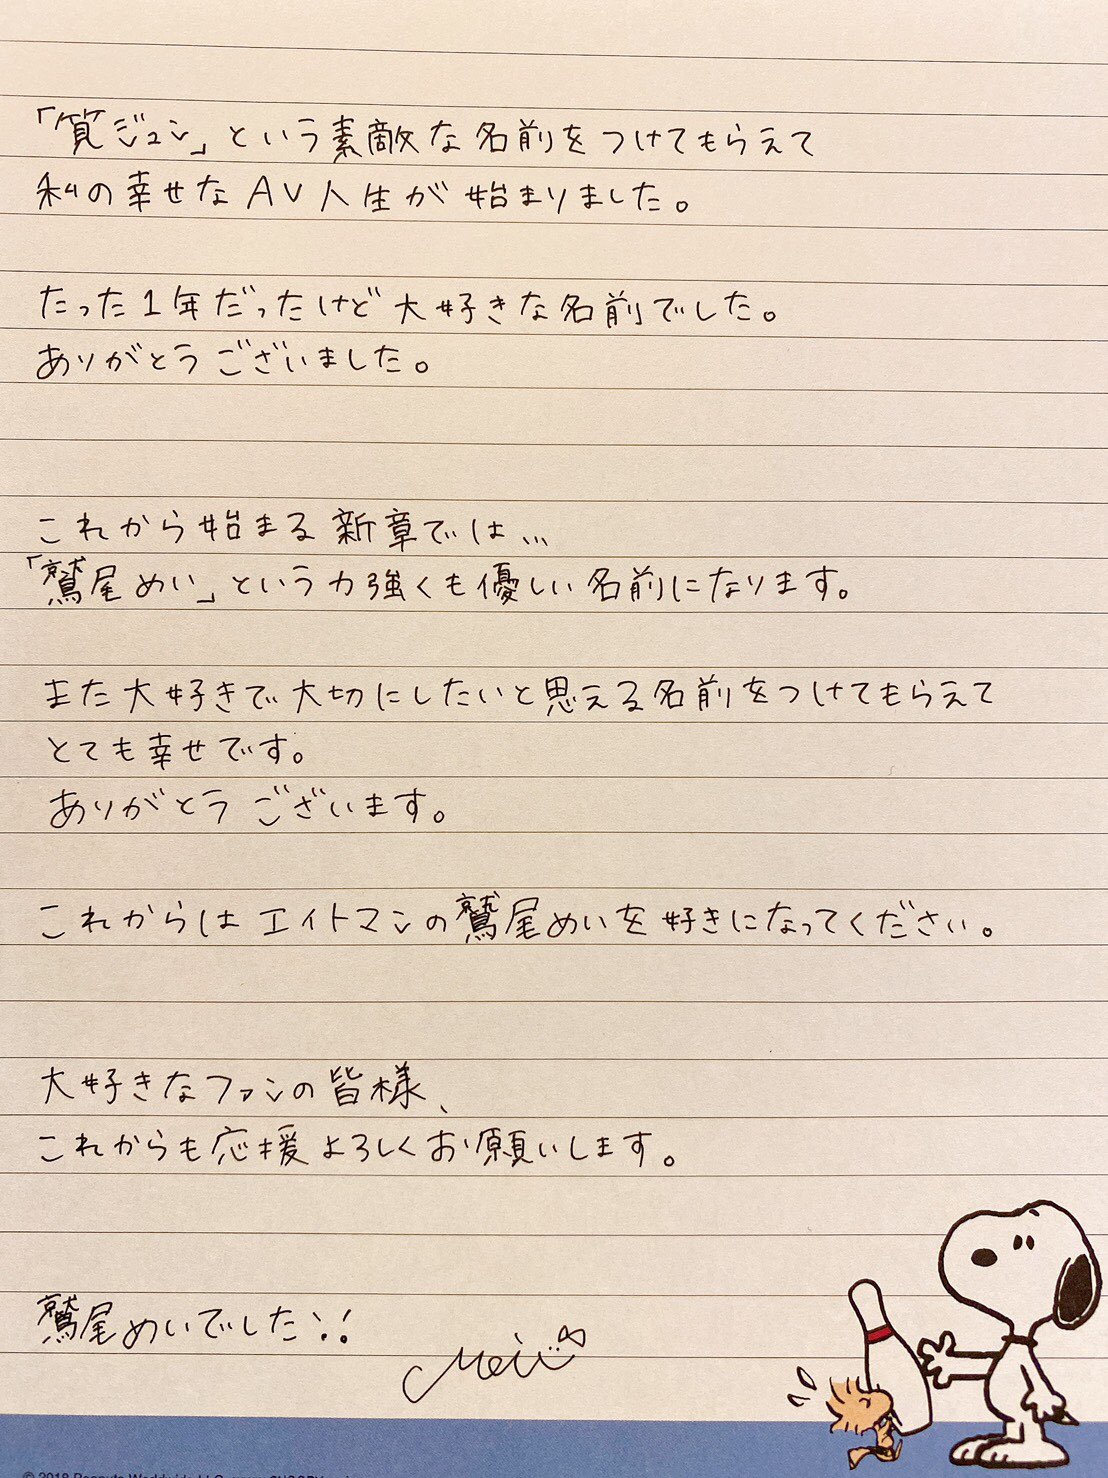 「筧ジュン」という素敵な名前をつけてもらえて
私の幸せなAV人生が始まりました。
たった1年だったけど大好きな名前でした。
ありがとうございました。
これから始まる新章では...
「鷲尾めい」という力強くも優しい名前になります。
また大好きで大切にしたいと思える名前をつけてもらえて
とても幸せです。
ありがとうございます。
これからはエイトマンの鷲尾めいを好きになってください。
大好きなファンの皆様、
これからも応援よろしくお願いします。
鷲尾めいでした!!
Mei
© 2018 Peanuts Worldwide LLC